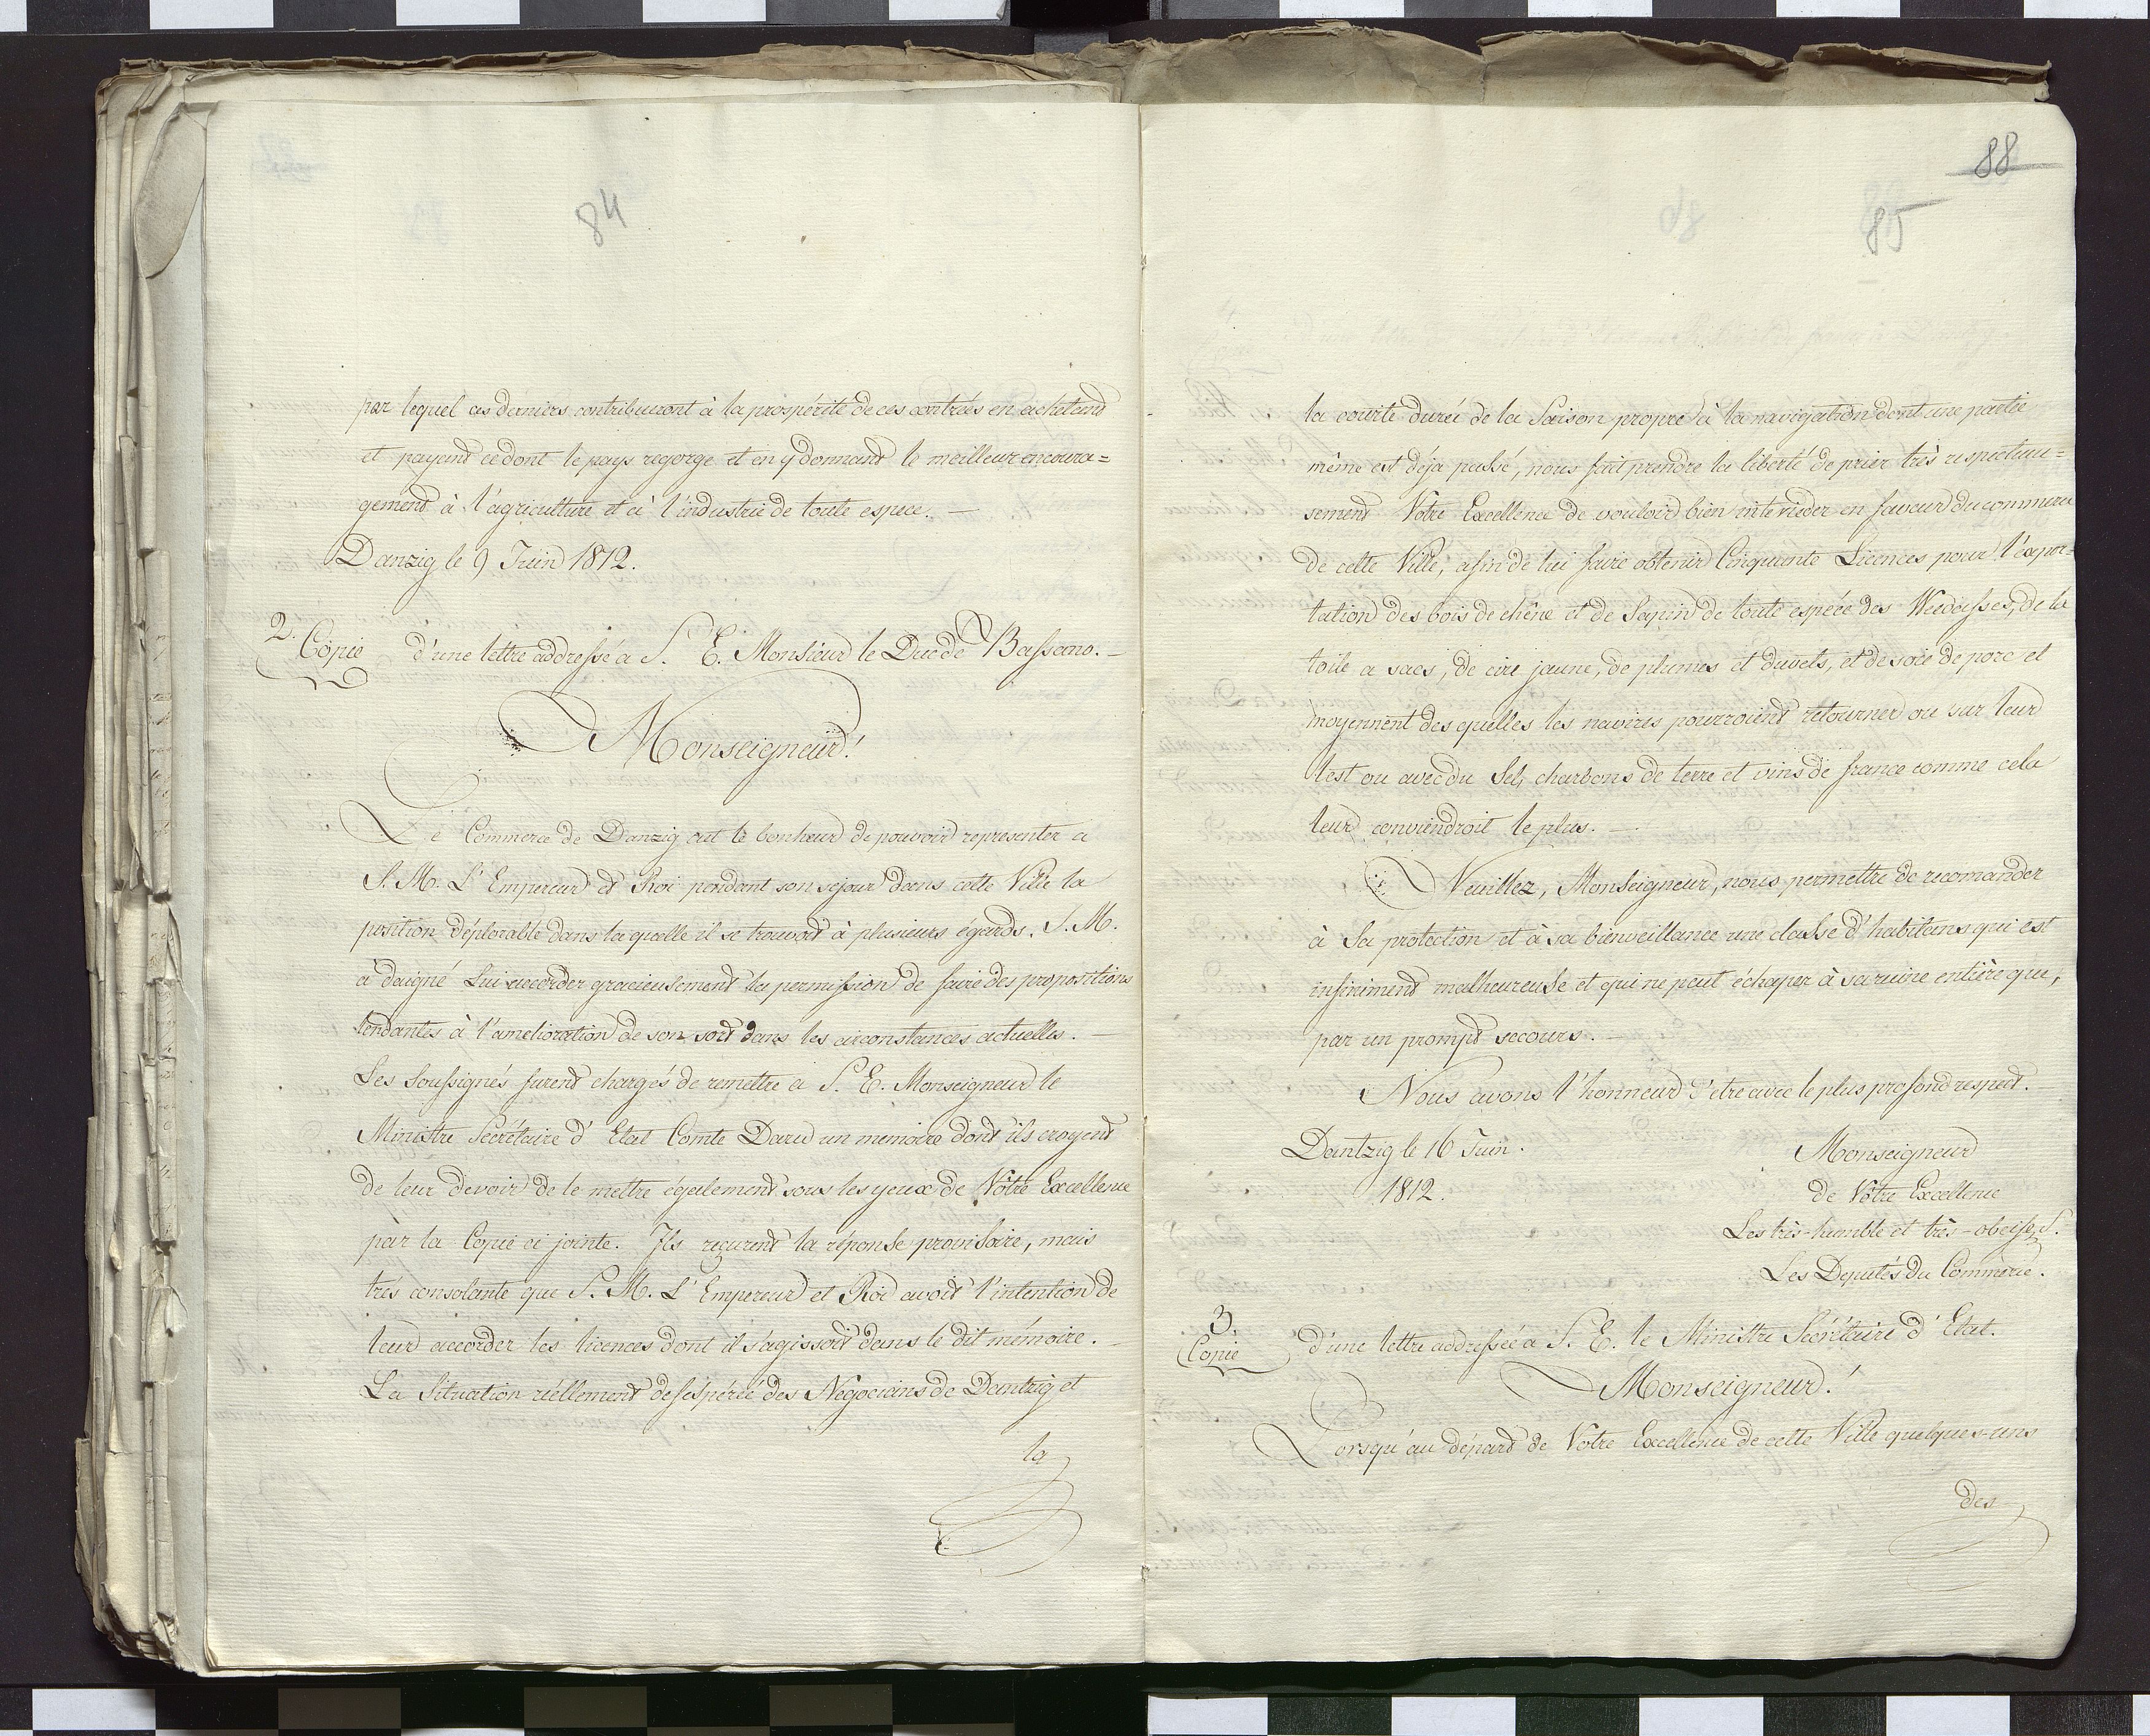 84
par lequel ces derniers contribueront à la prospérité de ces contrées en achetant
et payant ce dont le pays regorge et en y donnant le meilleur encoura=
gement à l'agriculture et à l'industrie de toute espece. —
Danzig le 9 Juin 1812.
2.
Copie d'une lettre addressé a S. E. Monsieur le Duc de Bassano. —
Monseigneur!
Le Commerce de Danzig eut le bonheur de pouvoir representer a
S. M. L'Empereur et Roi pendant son sejour dans cette Ville la
position déplorable dans laquelle il se trouvoit à plusieurs égards. S. M.
a daigné Lui accorder gracieusement la permission de faire des propositions
tendantes à l'amelioration de son sort dans les circonstances actuelles.
Les Soussignés furent chargés de remettre a S. E. Monseigneur le
Ministre Secrétaire d'Etat Comte Daru un memoire dont ils croyent
de leur devoir de le mettre également sous les yeux de Vôtre Excellence
par la Copie ci jointe. Ils reçurent la réponse provisoire, mais
trés consolante que S. M. L'Empereur et Roi avoit l'intention de
leur accorder les licences dont il s'agissoit dans le dit mémoire. —
La Situation réellement desespérée des Négocians de Dantzig et
la
88
85
la courte durée de la Saison propre à la navigation dont une partie
même est déja passé, nous fait prendre la liberté de prier très respectueu=
sement Votre Excellence de vouloir bien interceder en faveur du commerce
de cette Ville, afin de lui faire obtenir Cinquante Licences pour l'expor=
tation des bois de chêne et de Sapin de toute espéce des Weedasses, de la
toile a sacs, de cire jaune, de plumes et duvets, et de soie de porc et
moyennent des quelles les navires pourroient retourner ou sur leur
lest ou avec du Sel, charbons de terre et vins de france comme cela
leur conviendroit le plus. —
Veuillez, Monseigneur, nous permettre de recomander
à Sa protection et à sa bienveillance une classe d'habitans qui est
infiniment malheureuse et qui ne peut échaper à sa ruine entière que,
par un prompt secours. —
Nous avons l'honneur d'etre avec le plus profond respect.
Dantzig le 16 Juin.
1812.
Monseigneur
de Vôtre Excellence
Les très-humble et très-obeiss. S.
Les Deputés du Commerce.
3.
Copie d'une lettre addressée a S. E. le Ministre Secrétaire d'Etat.
Monseigneur!
Lorsqu'au départ de Votre Excellence de cette Ville quelques-uns
des